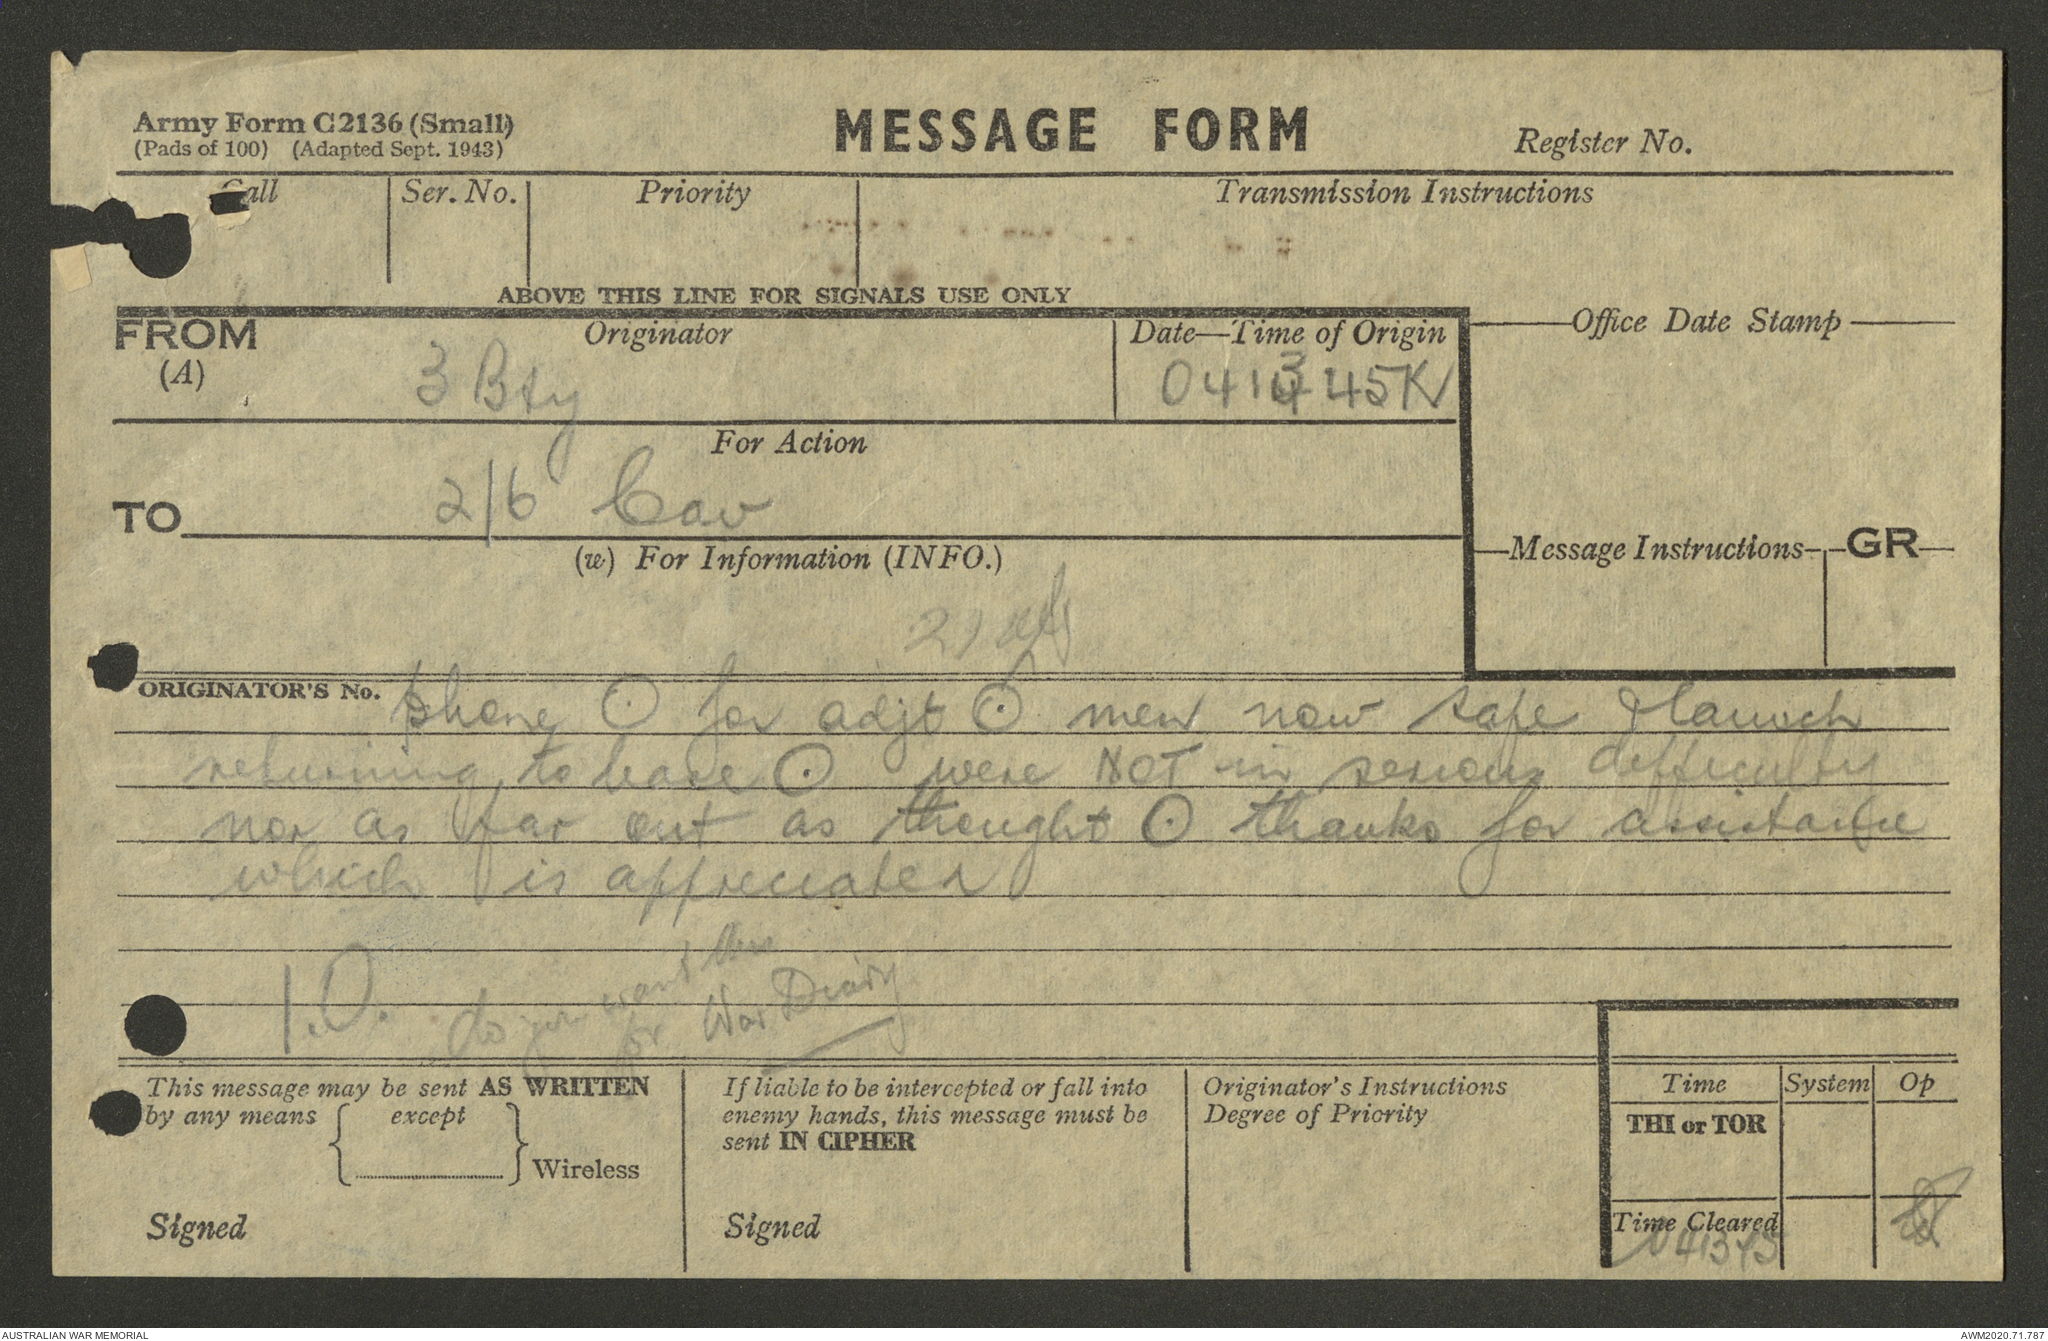 Army Form C2136 (Small)
(Pads of 100) (Adapted Sept. 1943)
MESSAGE FORM
Register No.
Call Ser. No. Priority Transmission Instructions
ABOVE THIS LINE FOR SIGNALS USE ONLY
FROM
(A)
Originator
3 Bty
Date—Time of Origin
041345K
Office Date Stamp
For Action
TO
2/6 Cav
(w) For Information (INFO.)
Message Instructions GR
ORIGINATOR'S No.
phone ⊙ for adjt ⊙ men now safe & launch
returning to base ⊙ were NOT in serious difficulty
nor as far out as thought ⊙ thanks for assistance
which is appreciated
I.O. do you want this
for War Diary
This message may be sent AS WRITTEN
by any means except
Wireless
Signed
If liable to be intercepted or fall into
enemy hands, this message must be
sent IN CIPHER
Signed
Originator's Instructions
Degree of Priority
Time System Op
THI or TOR
Time Cleared
041345
AUSTRALIAN WAR MEMORIAL
AWM2020.71.787